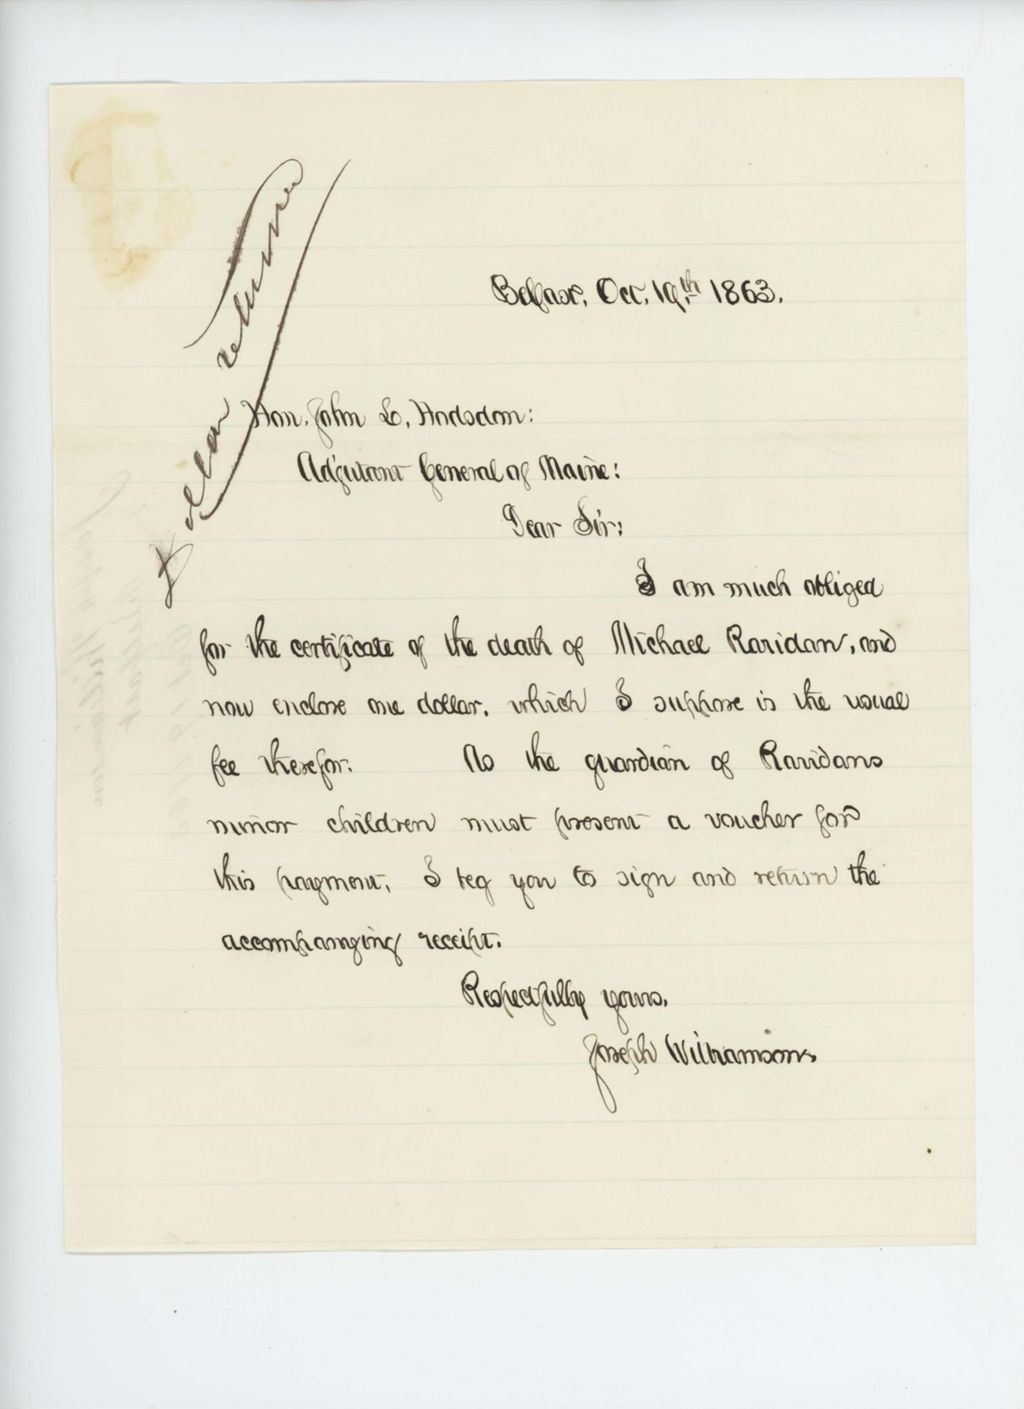 Dollar returned
Belfast, Oct. 19th 1863.
Hon. John L. Hodsdon:
Adjutant General of Maine:
Dear Sir:
I am much obliged
for the certificate of the death of Michael Raridan, and
now enclose one dollar, which I suppose is the usual
fee therefor. As the guardian of Raridans
minor children must present a voucher for
this payment, I beg you to sign and return the
accompanying receipt.
Respectfully yours,
Joseph Williamson